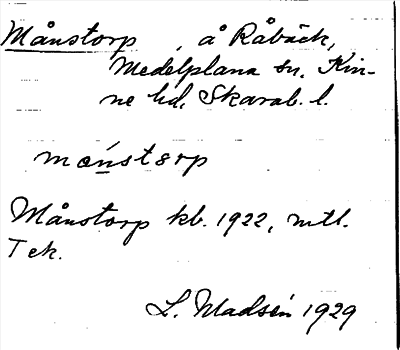 Månstorp å Råbäck,
Medelplana sn. Kin-
ne hd, Skarab. l.
mǫnstorp
Månstorp kb. 1922, mtl.
Tek.
L. Madsén 1929